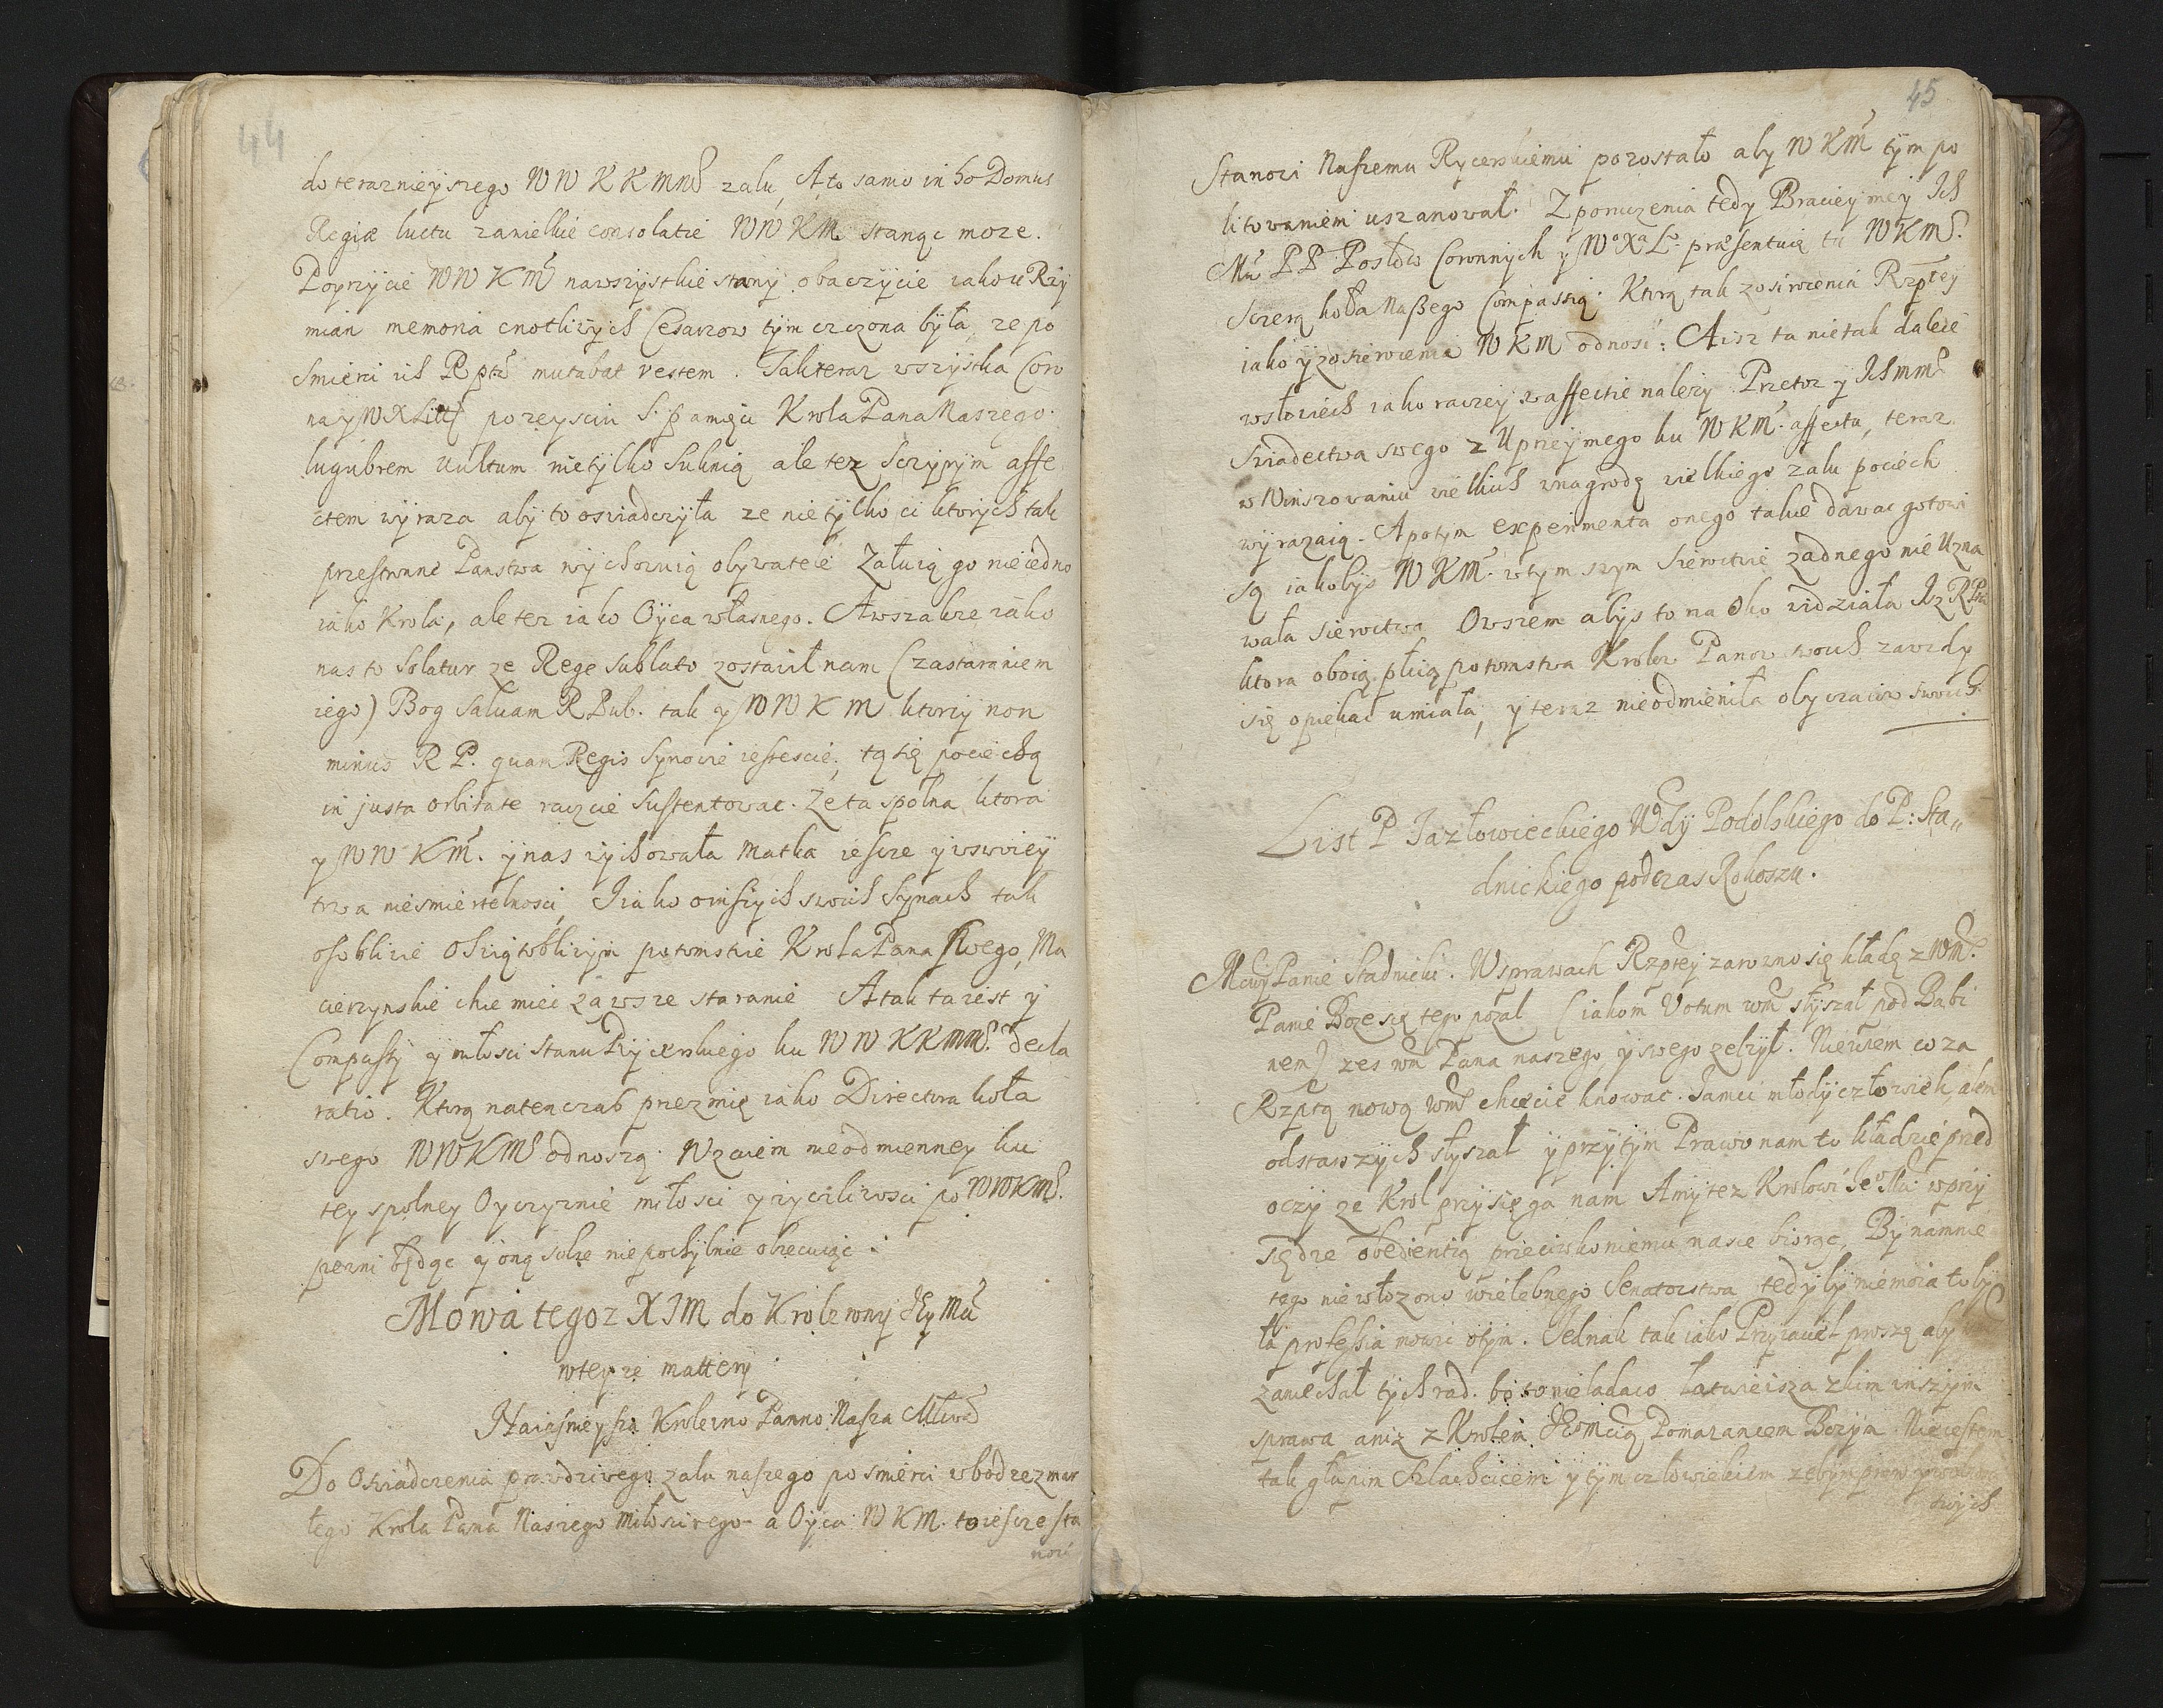 44
do terazniejszego W W K K Mnś zalu, A to samo in hoc Domus
Regiæ luctu za wielkie consolatie WW KM stanąc moze.
Poyrzycie WW KMś na wszystkie stany obaczycie iako u Rzy
mian memoria cnotliwych Cesarzow tym czczona była, ze po
smierci ich R ptś mutabat vestem. Tak teraz wszystka Coro
na y W X Litt po zeysciu S. pamięci Krola Pana Naszego.
lugubrem vultum nie tylko suknią ale tez sczyrym affe
ctem wyraza aby to oswiadczyła ze nie tylko ci ktorych tak
przestronne Panstwa wychowuią obywatele Załuią go nie iedno
iako Krola, ale tez iako Oyca własnego. A wszakze iako
nas to solatur ze Rege sublato zostawił nam (za staraniem
iego) Bog salvam R Pub. tak y W W K M ktorzy non
minus R P. quam Regis synowie iestescie, tą się pociechą
in justa orbitate raczcie sustentowac. Ze ta spolna ktora
y WW KMś. y nas wychowała Matka iescze y w swoiey
trwa niesmiertelnosci, I iako o inszych swoich synach tak
osobliwie o swiątobliwym potomstwie Krola Pana swego, Ma
cierzynskie chce miec zawsze staranie A tak ta iest y
Compassÿ y miłosci stanu Rycerskiego ku WW KK MMś. decla
ratio. Ktorą natenczas przez mię iako Directora koła
swego WW KMś odnoszą. Wzaiem nieodmienney ku
tey spolney Oyczyznie miłosci y zyczliwosci po WW KMś.
pewni będąc y oną sobie niepochybnie obiecuiąc.
Mowa tegoz XJM do Krolewny Jey Mci
w teyze materÿ
Naiasnieysza Krolewno Panno Nasza Mtciwa
Do oswiadczenia prawdziwego zalu naszego po smierci w bodze zmar
łego Krola Pana Naszego Miłosciwego a Oyca W KM. to iescze sta
nowi
45
Stanowi Naszemu Rycerskiemu pozostało aby W KMś tym po
litowaniem uszanował. Z poruczenia tedy Braciey mey Ich
Mci PP Posłow Coronnych y Wo Xa Lo præsentuię tu W KMś.
sczerą koła naszego Compassią. Ktorą tak z osirocenia Rzptey
iako y z osierocenia W KM odnosi: A isz ta nie tak dalece
w słowiech iako raczey w affectie nalezy. Przetoz y Ich mmś
swiadectwa swego z Uprzeymego ku W KMś. affectu, teraz
w Winszowaniu wielkich w nagrodę wielkiego zalu pociech
wyrazaią. A potym experimenta onego takie dawac gotowi
są iakobys W KMś. w tym swym sieroctwie zadnego nie Uzna
wała sieroctwa Owszem abys to na Oko widziała Iz R Pta
ktora oboią płcią potomstwa Krolow Panow swoich zawzdy
się opiekac umiała, y teraz nie odmieniła obyczaiow swoich.
List P Jazłowieckiego Wdy Podolskiego do P: Sta„
dnickiego podczas Rokoszu.
Mciwy Panie Stadnicki. W sprawach Rzptey zarowno się kładę z Wmś.
Panie Boze się tego pozal (iakom Votum wm słyszał pod Babi
nem) zes wm Pana naszego y swego zelzył. Nie wiem co za
Rzptą nową wmś chcecie knowac. Iamci młody człowiek, alem
od starszych słyszał y przy tym Prawo nam to kładzie przed
oczy ze Krol przysięga nam A my tez Krolowi Jeo Mci w przy
siędze obedientią przeciwko niemu na sie biorąc, By na mnie
tego nie włozono wielebnego Senatorstwa tedy by nie moia to by
ła professia mowic o tym. Iednak tak iako Przyiaciel proszę aby
zaniechał tych rad. bo to nie lada co łatwieisza z kim inszym
sprawa aniz z Krolem JeoMcią Pomazancem Bozym. Nie iestem
tak głupim Szlachcicem y tym człowiekiem zebym praw y wolnosci
swych